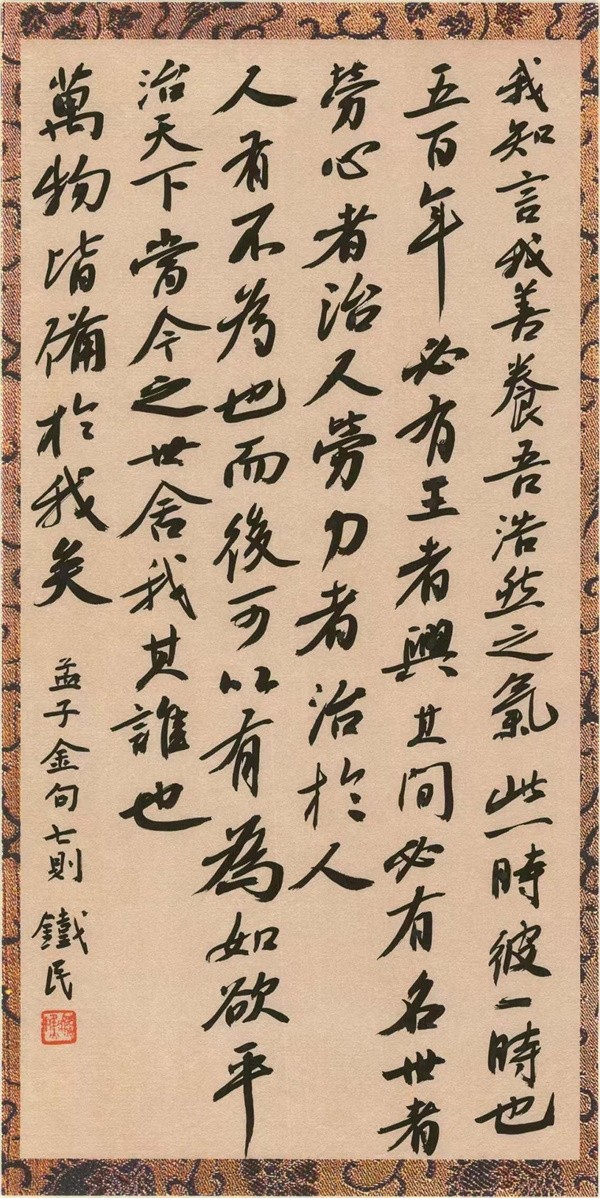 我知言我善養吾浩然之氣此一時彼一時也
五百年必有王者興其間必有名世者
勞心者治人勞力者治於人
人有不為也而後可以有為如欲平
治天下當今之世舍我其誰也
萬物皆備於我矣
孟子金句七則 鐵民